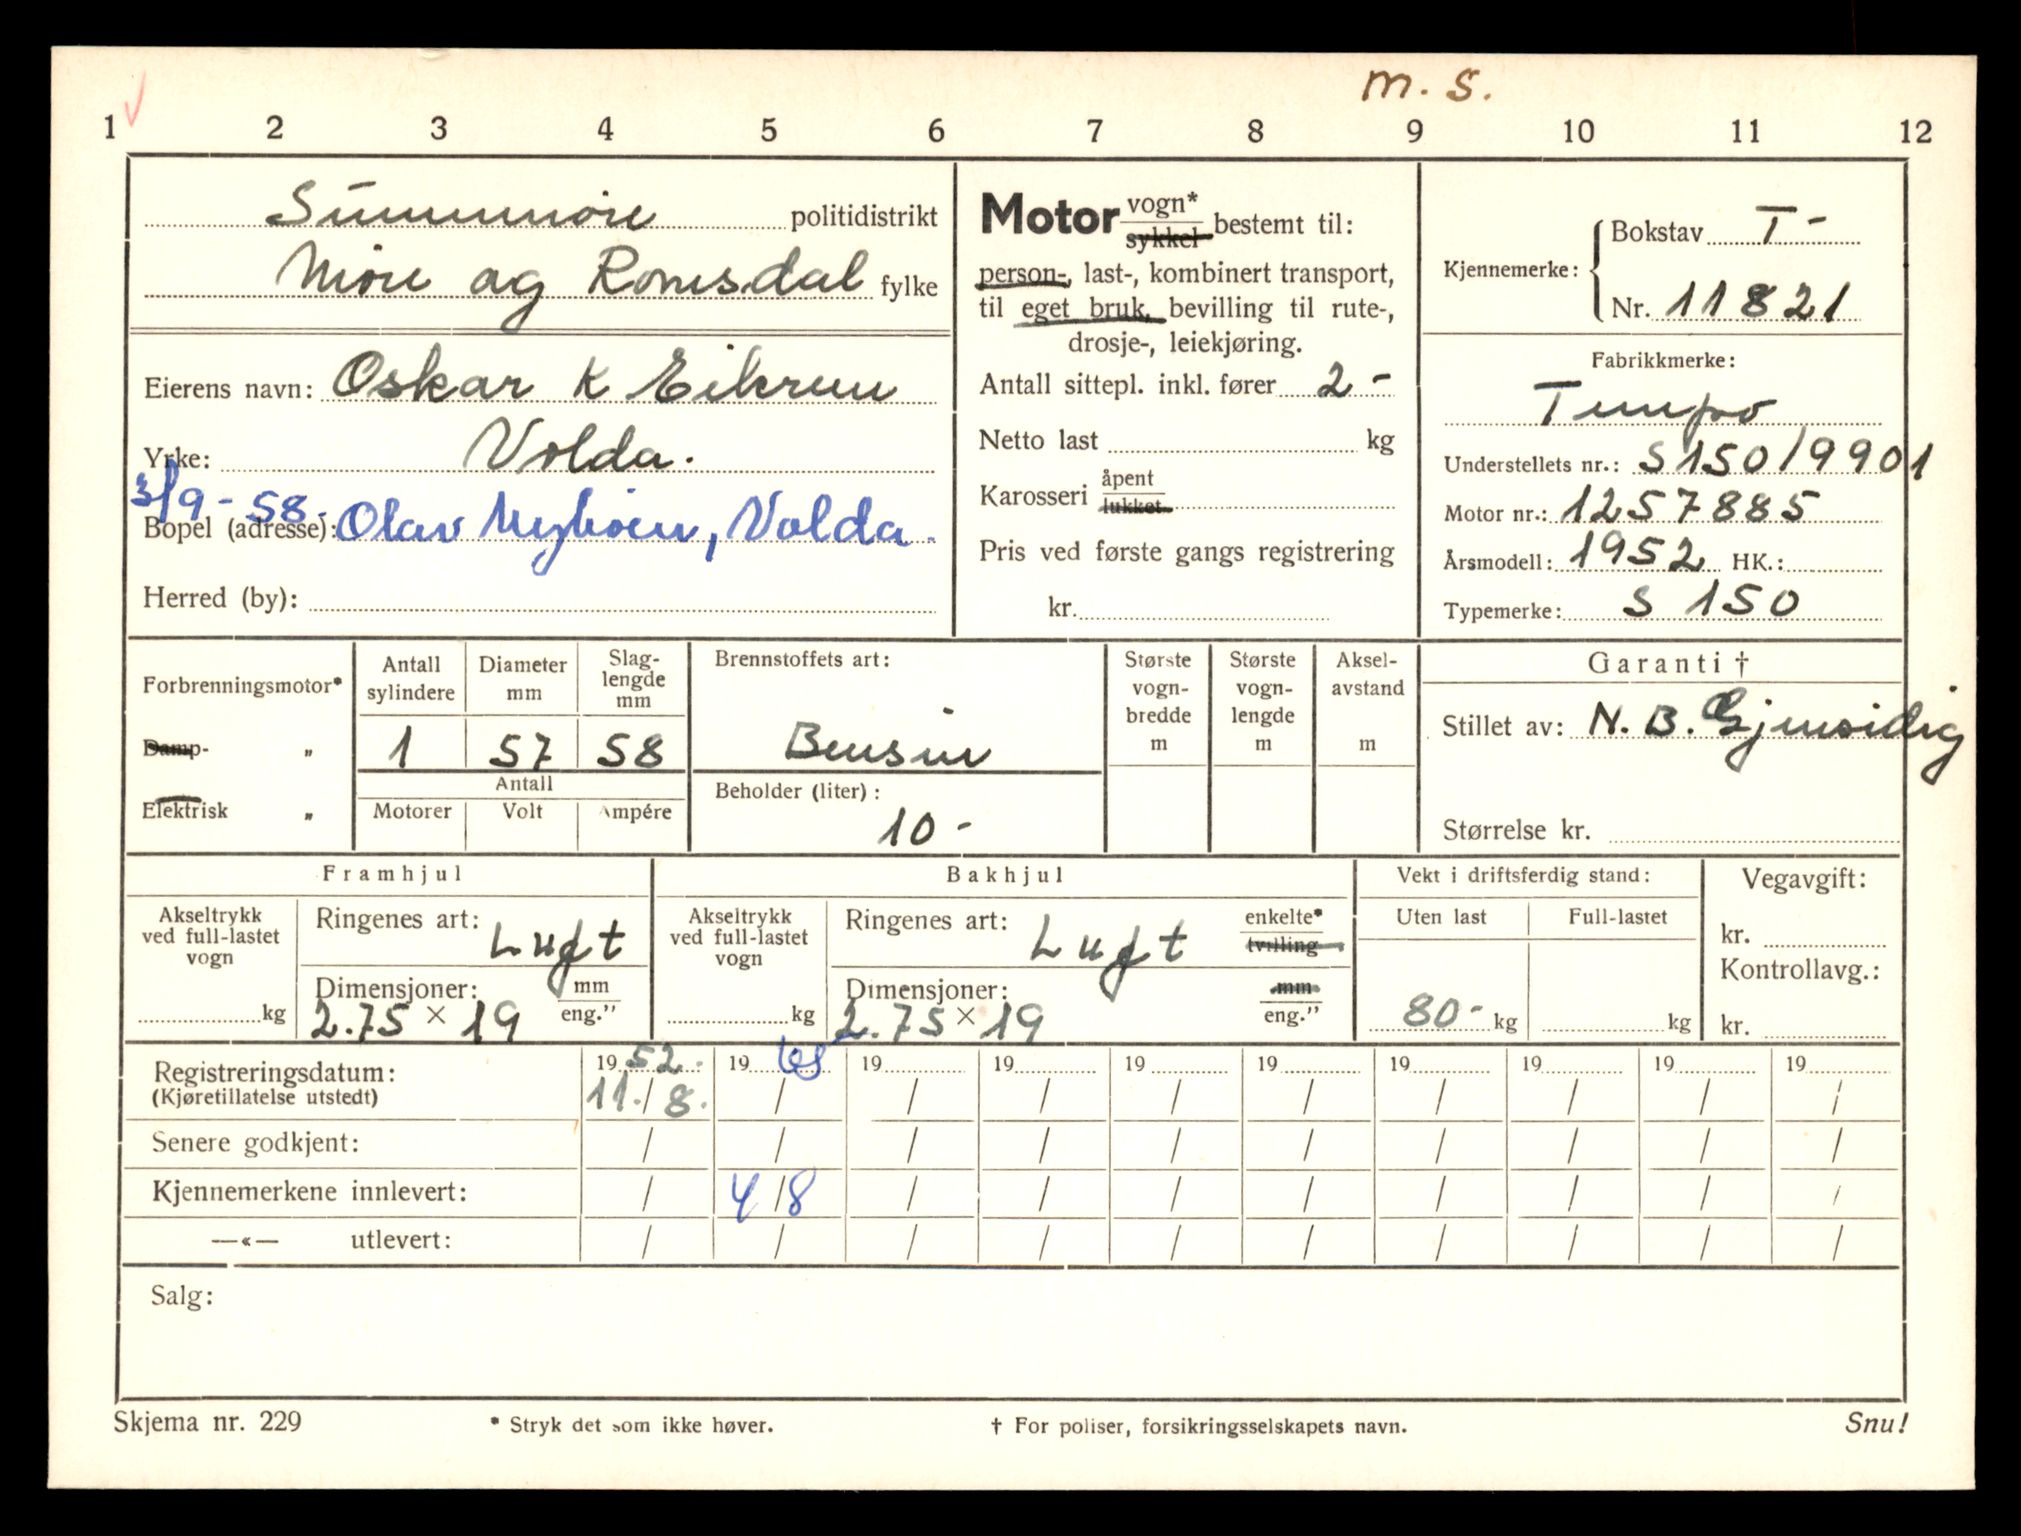 m. s.
1 2 3 4 5 6 7 8 9 10 11 12
Sunnmøre politidistrikt
Møre og Romsdal fylke
Eierens navn: Oskar K Eikrem
Yrke: Volda.
3/9-58.
Bopel (adresse): Olav Myhren, Volda.
Herred (by):
Motor vogn* sykkel bestemt til:
person-, last-, kombinert transport,
til eget bruk, bevilling til rute-,
drosje-, leiekjøring.
Antall sittepl. inkl. fører 2-
Netto last kg
Karosseri åpent lukket
Pris ved første gangs registrering
kr.
Kjennemerke: Bokstav T-
Nr. 11821
Fabrikkmerke:
Tempo
Understellets nr.: S 150/9901
Motor nr.: 1257885
Årsmodell: 1952 HK.:
Typemerke: S 150
Forbrenningsmotor*
Damp- „
Elektrisk „
Antall sylindere Diameter mm Slag-lengde mm
1 57 58
Antall
Motorer Volt Ampére
Brennstoffets art:
Bensin
Beholder (liter):
10-
Største vogn-bredde m
Største vogn-lengde m
Aksel-avstand m
Garanti †
Stillet av: N. B. Gjensidig
Størrelse kr.
Framhjul
Akseltrykk ved full-lastet vogn
kg
Ringenes art: Luft
Dimensjoner: mm eng."
2.75 × 19
Bakhjul
Akseltrykk ved full-lastet vogn
kg
Ringenes art: Luft enkelte* tvilling
Dimensjoner: mm eng."
2.75 × 19
Vekt i driftsferdig stand:
Uten last Full-lastet
80- kg kg
Vegavgift:
kr.
Kontrollavg.:
kr.
Registreringsdatum: 19 52. 19 19 19 19 19 19 19 19 19
(Kjøretillatelse utstedt) 11./8. / / / / / / / / /
Senere godkjent: / / / / / / / / / /
Kjennemerkene innlevert: / 4/8 / / / / / / / /
—«— utlevert: / / / / / / / / / /
Salg:
Skjema nr. 229 * Stryk det som ikke høver. † For poliser, forsikringsselskapets navn. Snu!